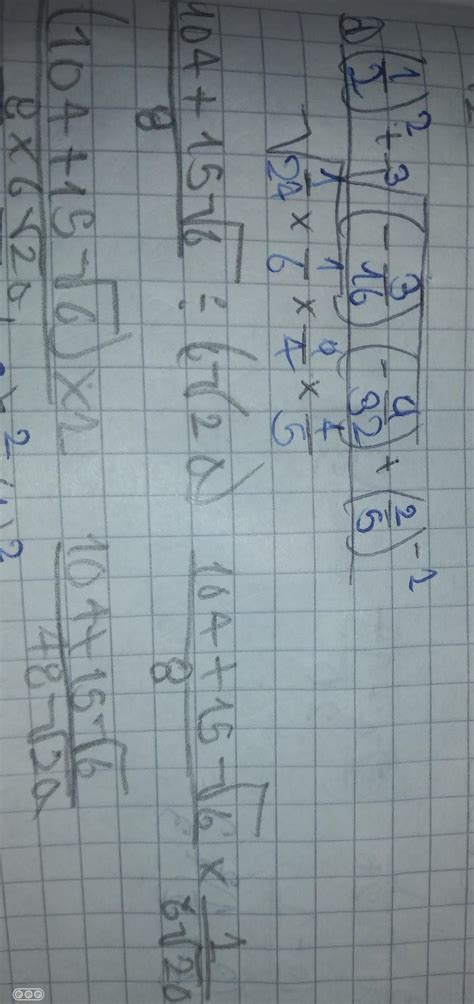 a) (1/2)² + ³√((-3/16)(-9/32)) + (2/5)⁻²
√(1/24 × 1/6 × 6/4 × 4/5)
(104+15√6)/8 ÷ (6√20) (104+15√6)/8 × 1/(6√20)
(104+15√6)×1/(8×6√20) (104+15√6)/(48√20)